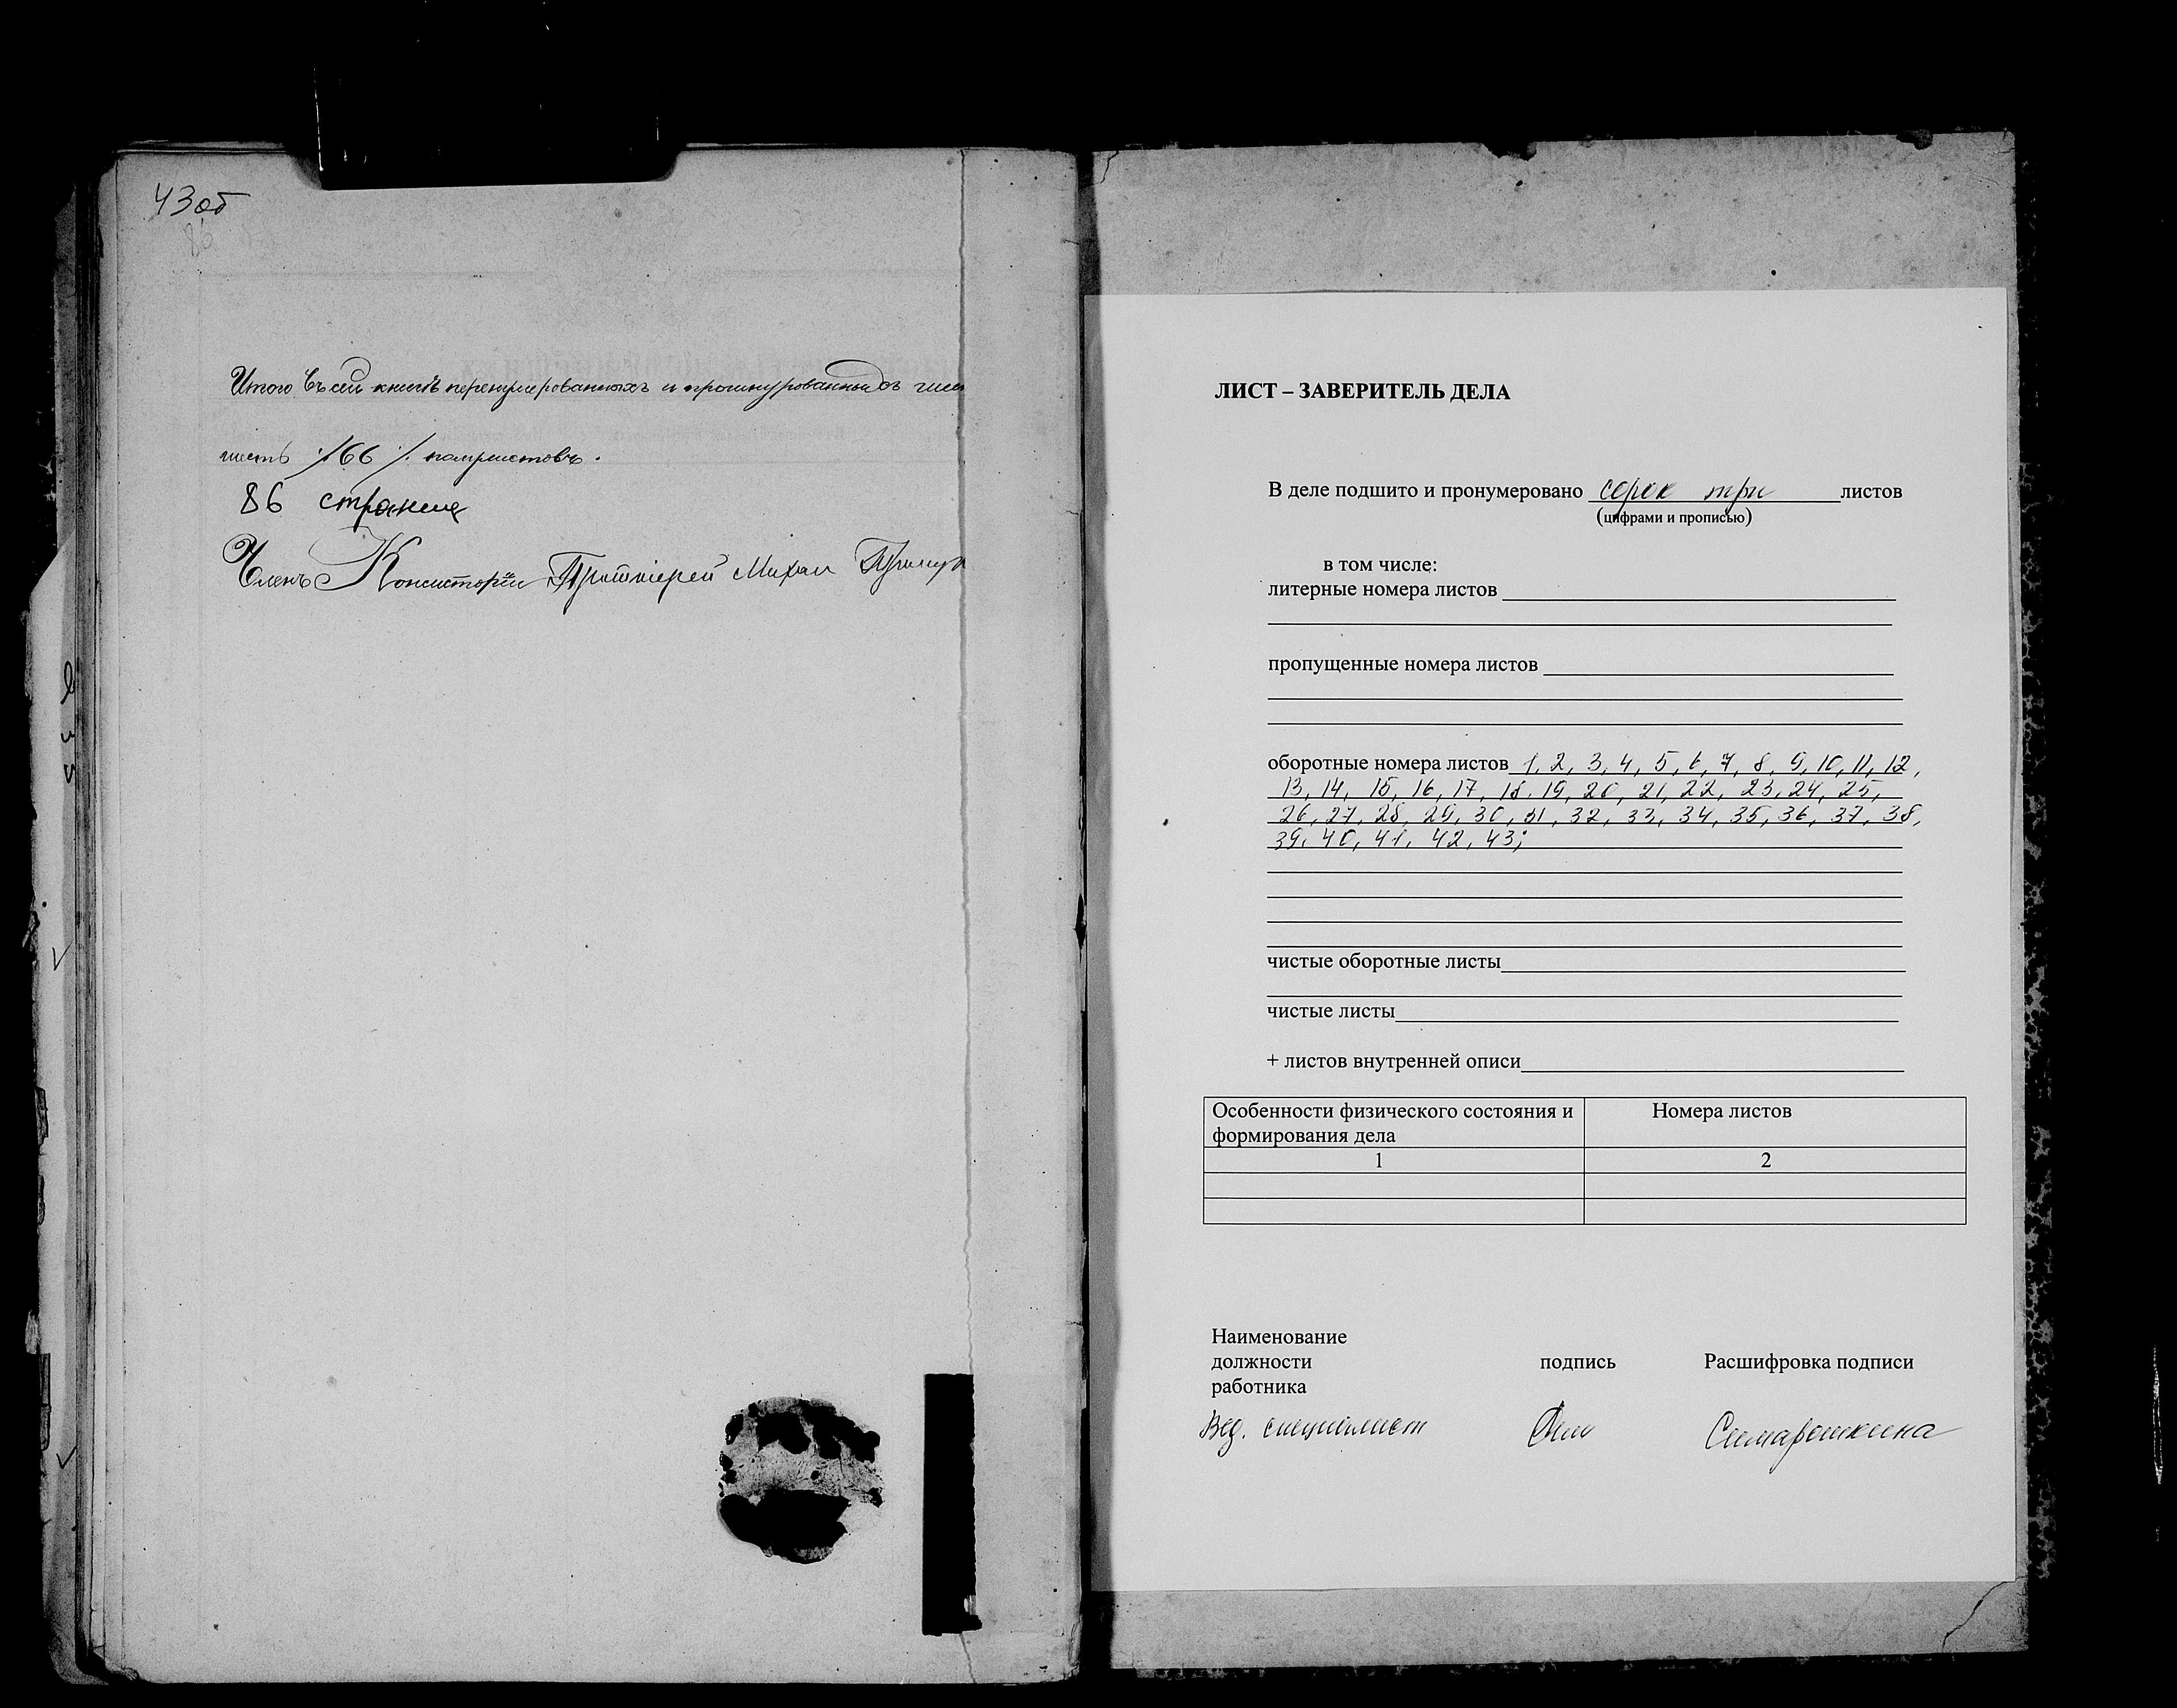 43об
86
Итого въ сей книгѣ перенумерованныхъ и прошнурованныхъ
шесть /66/ полулистовъ.
86 страниц
Членъ Консисторіи Протоіерей Михаил
ЛИСТ – ЗАВЕРИТЕЛЬ ДЕЛА
В деле подшито и пронумеровано сорок три листов
(цифрами и прописью)
в том числе:
литерные номера листов
пропущенные номера листов
оборотные номера листов 1, 2, 3, 4, 5, 6, 7, 8, 9, 10, 11, 12,
13, 14, 15, 16, 17, 18, 19, 20, 21, 22, 23, 24, 25,
26, 27, 28, 29, 30, 31, 32, 33, 34, 35, 36, 37, 38,
39, 40, 41, 42, 43;
чистые оборотные листы
чистые листы
+ листов внутренней описи
Особенности физического состояния и формирования дела
Номера листов
1 2
Наименование
должности подпись Расшифровка подписи
работника
Вед. специалист Симарошкина